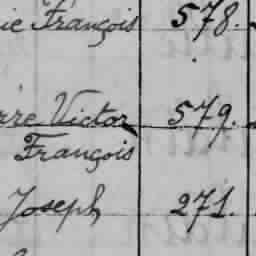 ie François 578.
rre Victor 579.
François
Joseph 271.